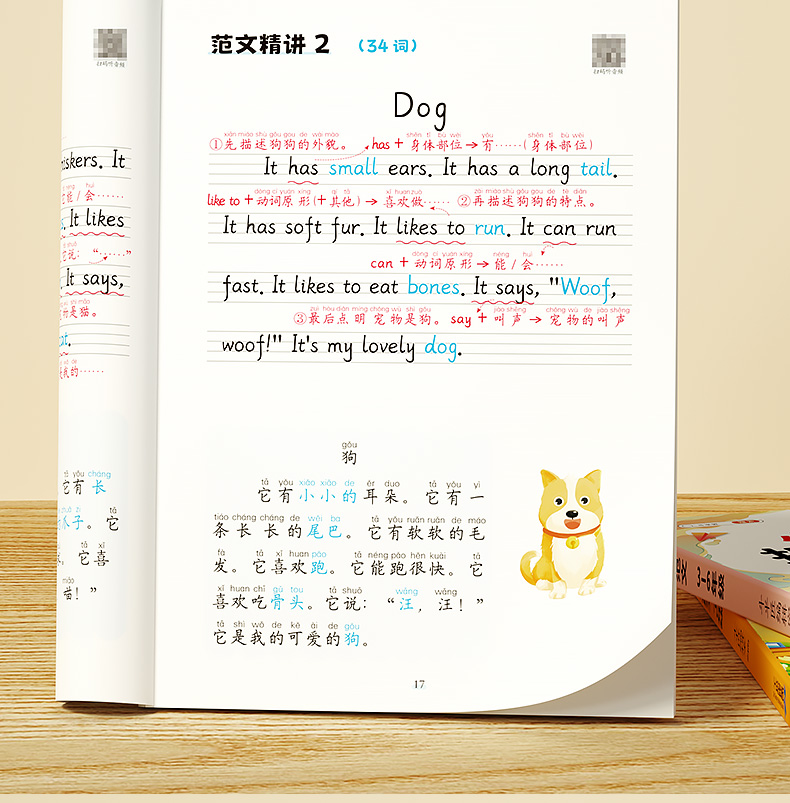 扫码听音频
iskers. It
它能/会……
s. It likes
它说:“……”
. It says,
物是猫。
cat.
是我的……
它有长
爪子。它
。它喜
猫!”
范文精讲 2 (34 词)
扫码听音频
Dog
xiān miáo shù gǒu gou de wài mào shēn tǐ bù wèi yǒu shēn tǐ bù wèi
①先描述狗狗的外貌。 has + 身体部位 → 有……(身体部位)
It has small ears. It has a long tail.
dòng cí yuán xíng qí tā xǐ huan zuò zài miáo shù gǒu gou de tè diǎn
like to + 动词原形(+ 其他) → 喜欢做…… ②再描述狗狗的特点。
It has soft fur. It likes to run. It can run
dòng cí yuán xíng néng huì
can + 动词原形 → 能/会……
fast. It likes to eat bones. It says, "Woof,
zuì hòu diǎn míng chǒng wù shì gǒu jiào shēng chǒng wù de jiào shēng
③最后点明宠物是狗。 say + 叫声 → 宠物的叫声
woof!" It's my lovely dog.
gǒu
狗
tā yǒu xiǎo xiǎo de ěr duo tā yǒu yì
它有小小的耳朵。它有一
tiáo cháng cháng de wěi ba tā yǒu ruǎn ruǎn de máo
条长长的尾巴。它有软软的毛
fà tā xǐ huan pǎo tā néng pǎo hěn kuài tā
发。它喜欢跑。它能跑很快。它
xǐ huan chī gǔ tou tā shuō wāng wāng
喜欢吃骨头。它说:“汪,汪!”
tā shì wǒ de kě ài de gǒu
它是我的可爱的狗。
17
3-6年级